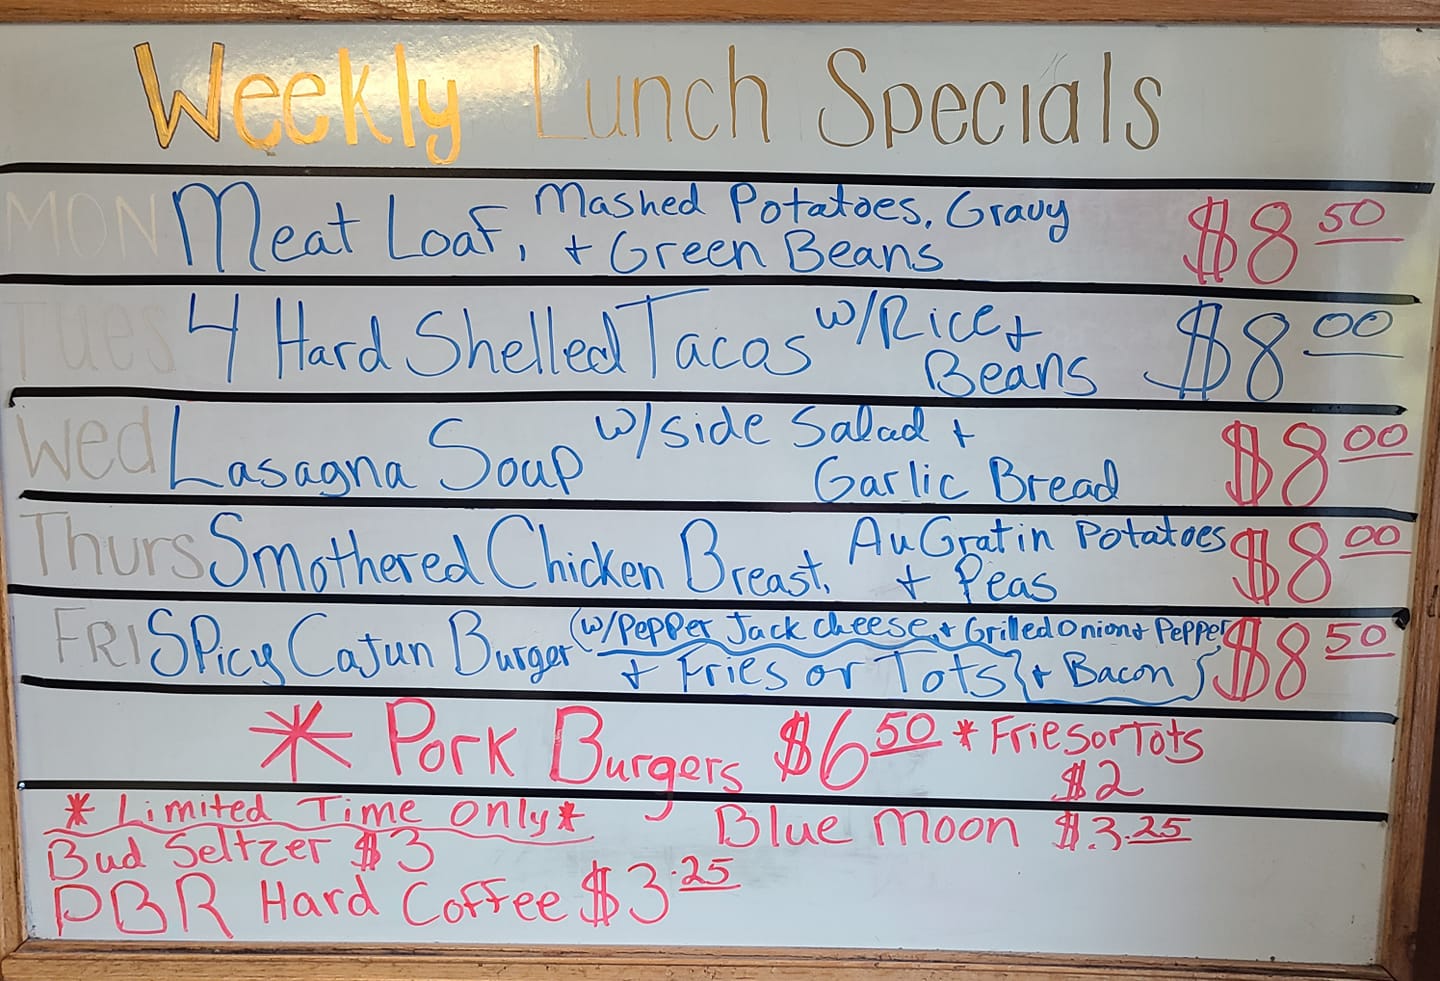 Weekly Lunch Specials
MON Meat Loaf, Mashed Potatoes, Gravy $8 50
+ Green Beans
Tues 4 Hard Shelled Tacos w/Rice + $8 00
Beans
Wed Lasagna Soup w/side Salad + $8 00
Garlic Bread
Thurs Smothered Chicken Breast, Au Gratin Potatoes $8 00
+ Peas
FRI Spicy Cajun Burger (w/Pepper Jack cheese, + Grilled Onion + Pepper $8 50
+ Fries or Tots {+ Bacon}
* Pork Burgers $6 50 * Fries or Tots
$2
* Limited Time Only * Blue Moon $3.25
Bud Seltzer $3
PBR Hard Coffee $3.25